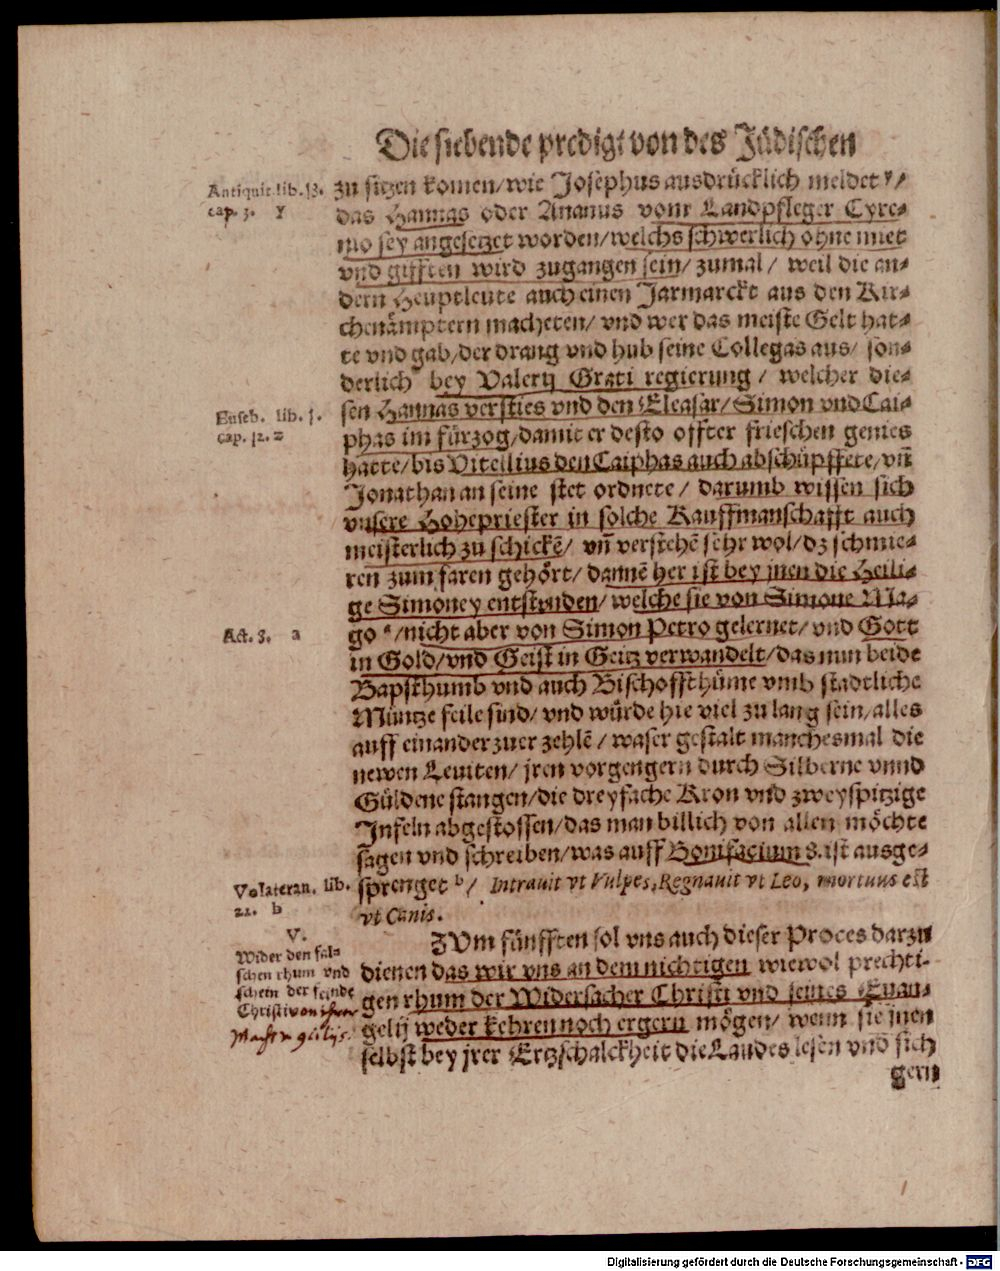 Die siebende predigt von des Jüdischen
Antiquit. lib. 13.
cap. 3. y
zu sitzen komen/ wie Josephus ausdrücklich meldet y/
das Hannas oder Ananus vom Landpfleger Cyre-
nio sey angesetzet worden/ welchs schwerlich ohne miet
vnd gifften wird zugangen sein/ zumal/ weil die an-
dern Heuptleute auch einen Jarmarckt aus den Kir-
chenämptern macheten/ vnd wer das meiste Gelt hat-
te vnd gab/ der drang vnd hub seine Collegas aus/ son-
derlich bey Valerij Grati regierung / welcher die-
Euseb. lib. 1.
cap. 12. z
sen Hannas versties vnd den Eleasar/ Simon vnd Cai-
phas im fürzog/ damit er desto offter frieschen genies
hatte/ bis Vitellius den Caiphas auch abschüpffete/ vñ
Jonathan an seine stet ordnete / darumb wissen sich
vnsere Hohepriester in solche Kauffmanschafft auch
meisterlich zu schickẽ/ vñ verstehẽ sehr wol/ dz schmie-
ren zum faren gehört/ dannẽ her ist bey jnen die Heili-
ge Simoney entstanden/ welche sie von Simone Ma-
Act. 3. a
go a/ nicht aber von Simon Petro gelernet/ vnd Gott
in Gold/ vnd Geist in Geitz verwandelt/ das nun beide
Bapsthumb vnd auch Bischoffthüme vmb stadtliche
Müntze feile sind/ vnd würde hie viel zu lang sein/ alles
auff einander zuer zehlẽ / waser gestalt manchesmal die
newen Leuiten/ jren vorgengern durch Silberne vnnd
Güldene stangen/ die dreyfache Kron vnd zweyspitzige
Jnfeln abgestossen/ das man billich von allen möchte
sagen vnd schreiben/ was auff Bonifacium 8. ist ausge-
Volateran. lib.
22. b
sprenget b/ Intrauit vt Vulpes, Regnauit vt Leo, mortuus est
vt Canis.
V.
Wider den fal-
schen rhum vnd
schein der feinde
Christi von ihrer
ZVm fünfften sol vns auch dieser Proces darzu
dienen das wir vns an dem nichtigen wiewol prechti-
gen rhum der Widersacher Christi vnd seines Euan-
gelij weder kehren noch ergern mögen/ wenn sie jnen
selbst bey jrer Ertzschalckheit die Laudes lesen vnd sich
gern
Digitalisierung gefördert durch die Deutsche Forschungsgemeinschaft - DFG